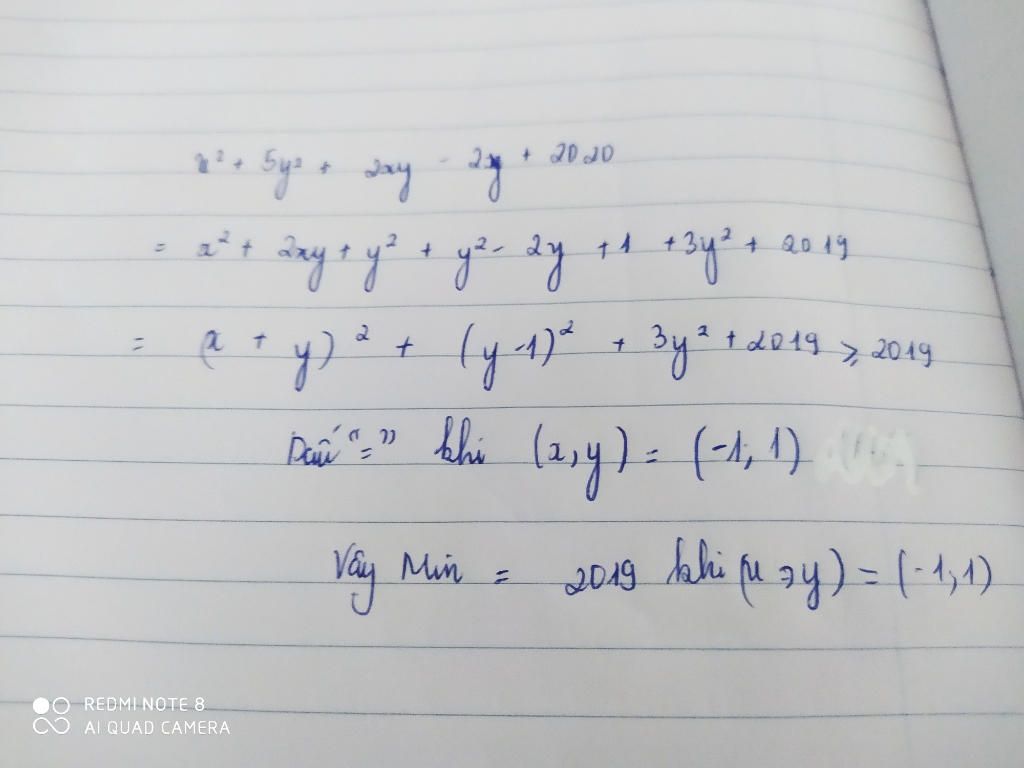 x² + 5y² + 2xy - 2y + 2020
= x² + 2xy + y² + y² - 2y + 1 + 3y² + 2019
= (x + y)² + (y - 1)² + 3y² + 2019 ≥ 2019
Dấu "=" khi (x, y) = (-1; 1)
Vậy Min = 2019 khi (x, y) = (-1, 1)
REDMI NOTE 8
AI QUAD CAMERA